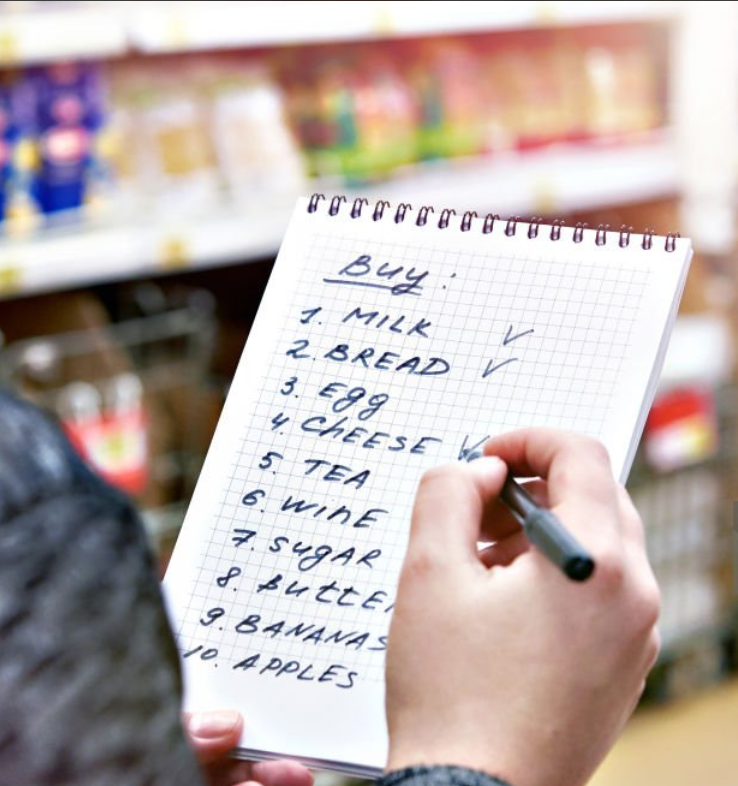 Buy:
1. MILK ✓
2. BREAD ✓
3. Egg
4. ChEESE ✓
5. TEA
6. WinE
7. SugAR
8. ButtE
9. BANANAS
10. APPLES